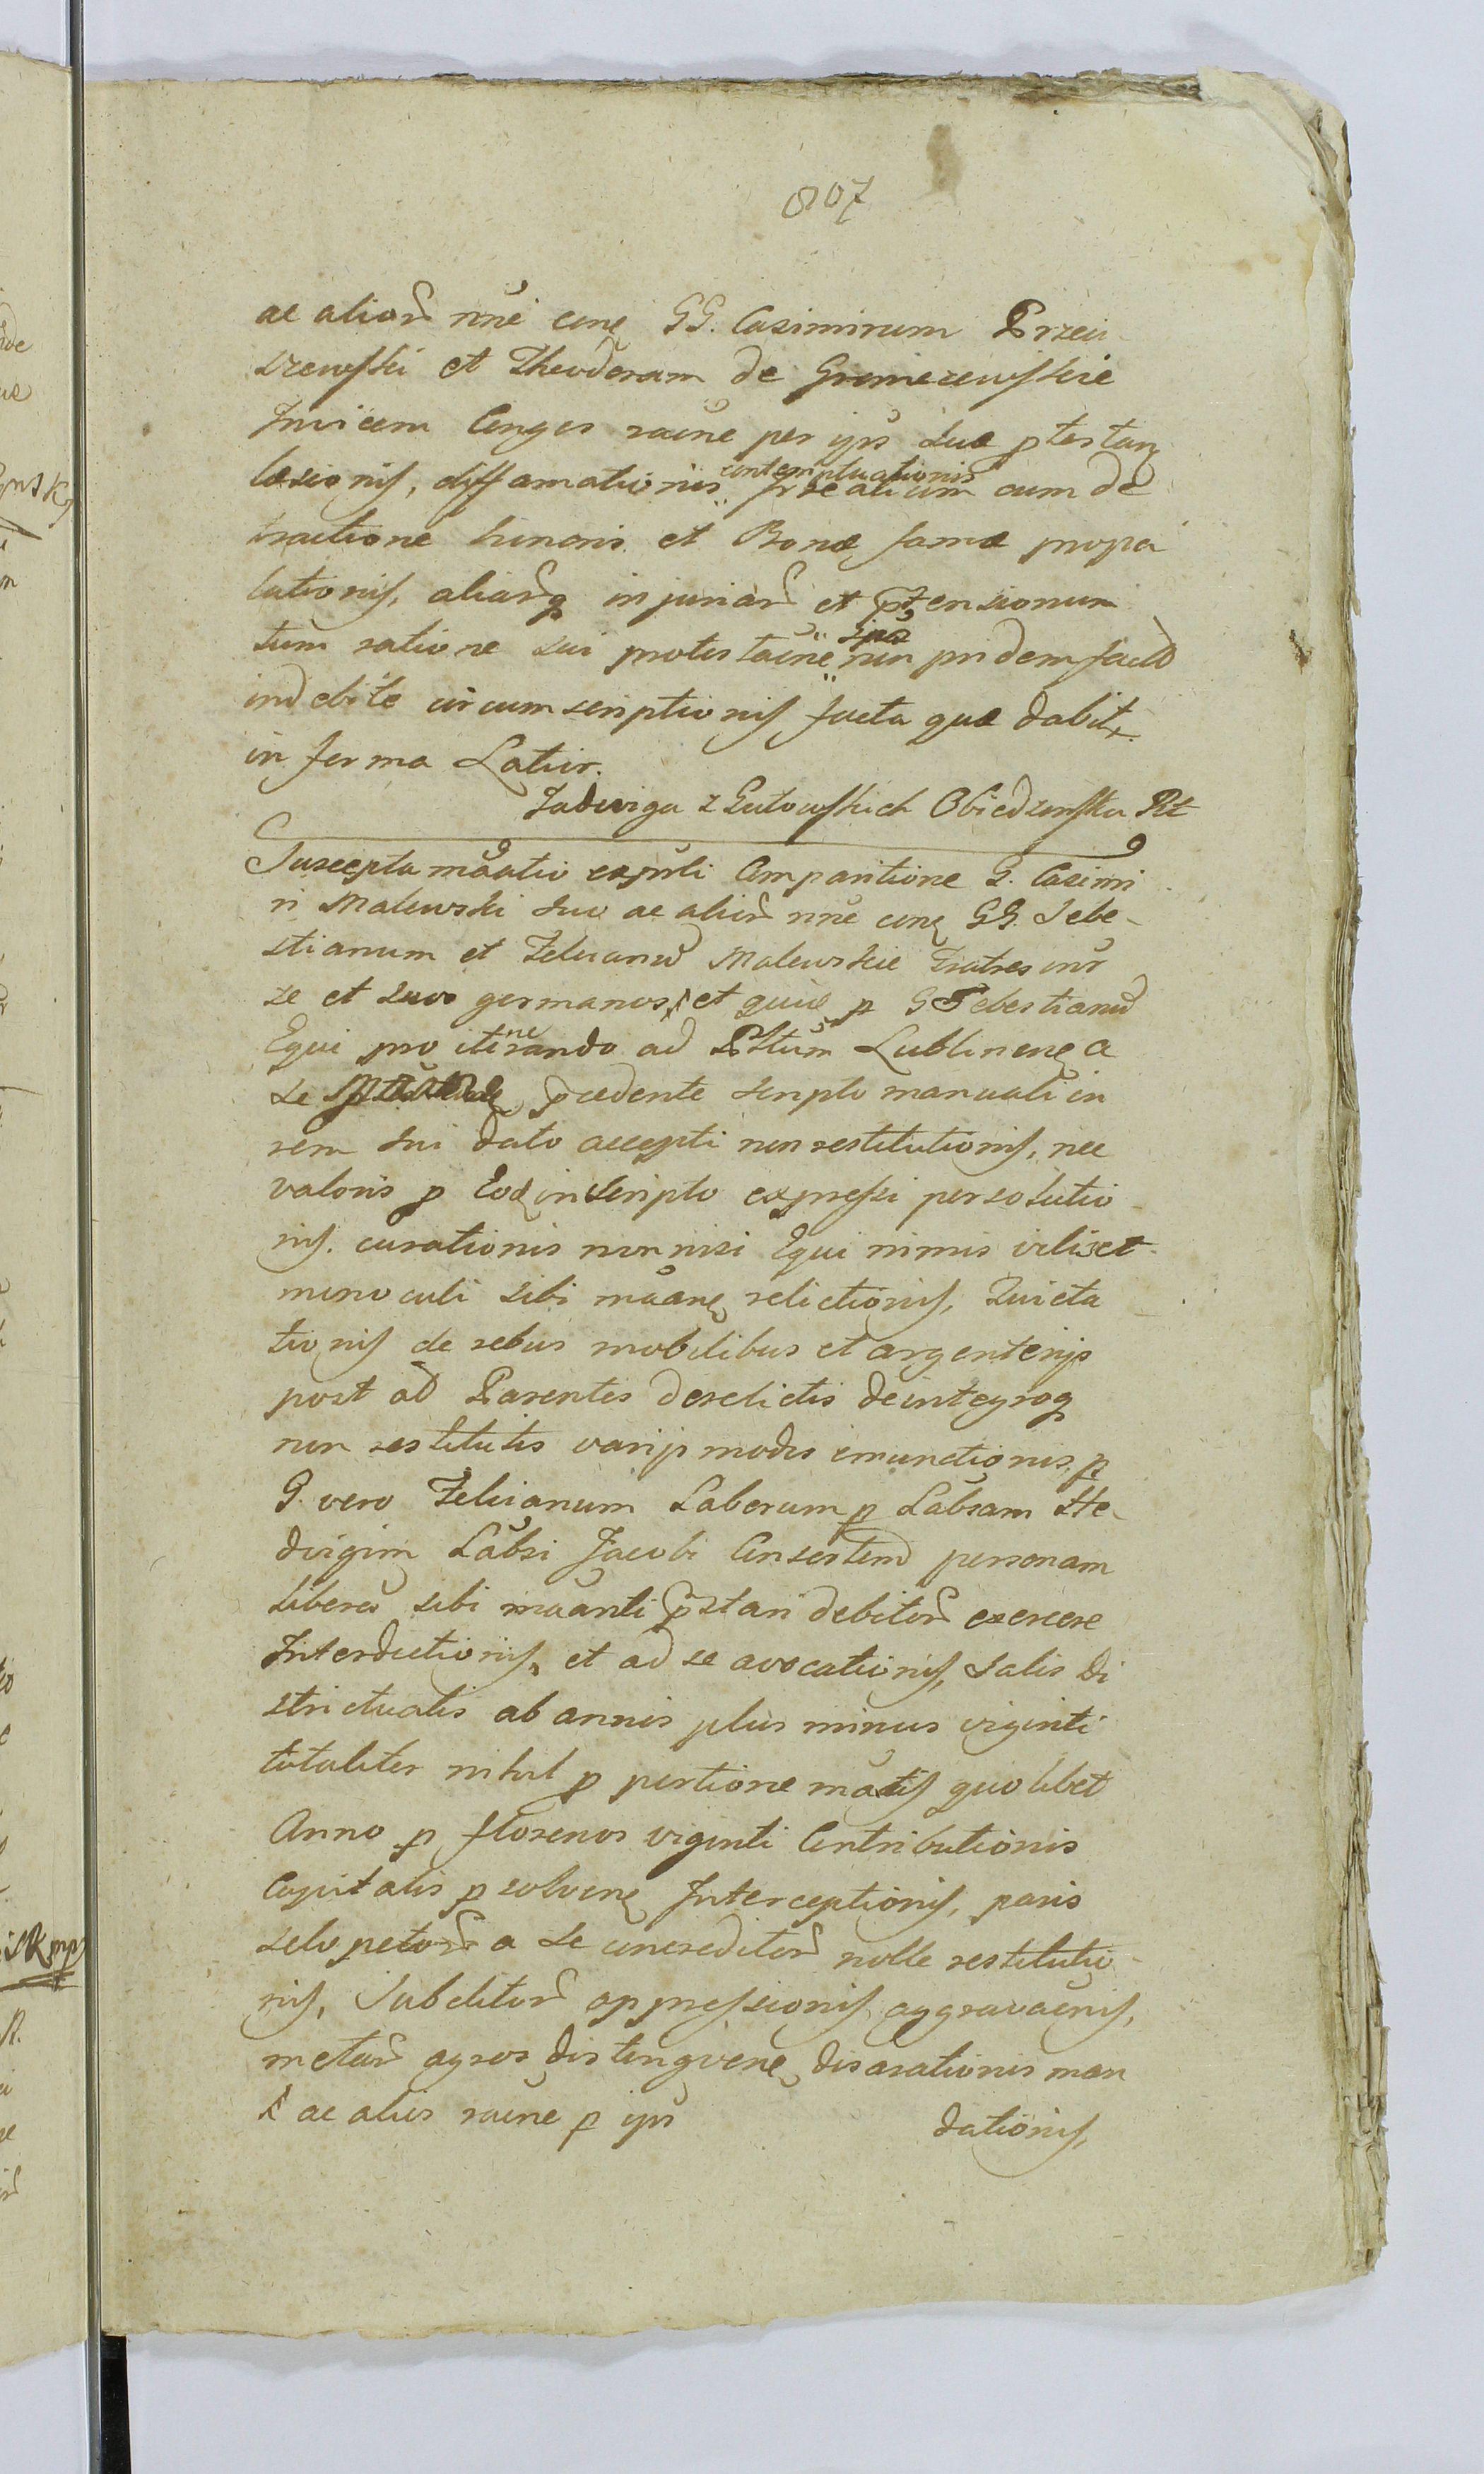 807
ac alior nne cone GG. Casimirum Przeci
szewski et Theodoram de Gromiezewskie
Invicem Conges raône per ips suæ ptestan
læsionis, diffamationis contemptuationis cum de
tractione honoris et Bonæ famæ propa
lationis, aliarq injuriar et ptensionum
tum ratione sui protestaône non pridem facto
indebite circumscriptionis facta quæ dabit.
in forma Latior.
Jadwiga z Gutowskich Obiedzinska Rt
Suscepta mãatio expuli Comparitione G. Casimi
ri Malewski suo ac alior nne cone GG. Sebe-
stianum et Feliciano Malewskie Fratres inr
se et suos germanos, et quidē p G Sebestianū
Equi pro itinerando ad Pltum Lublinene a
se præcedente scripto manuali in
rem sui dato accepti non restitutionis, nec
valoris p Eod inscripto expressi persolutio
nis. curationis non nisi Equi nimis vilis et
monoculi sibi mãane relictionis, Quieta
tionis de rebus mobilibus et argenterijs
post ad Parentes derelictis deintegroq
non restitutis varijs modis emunctionis, p
G. vero Felicianum Laborum p Labsam He-
dvigim Labsi Jacobi Consortem personam
liberā sibi mãanti pstari debitor exercere
Interdictionis, et ad se avocationis, Salis di
strictualis ab annis plus minus viginti
totaliter nihil p portione mãatis quolibet
Anno p florenos viginti Contributionis
Capitalis psolvene Interceptionis, paris
selopetor a se concreditor nolle restitutio
nis, Subditor oppressionis aggravaônis,
metar agros distingvene disarationis man
& ac aliis raône p ips
dationis,